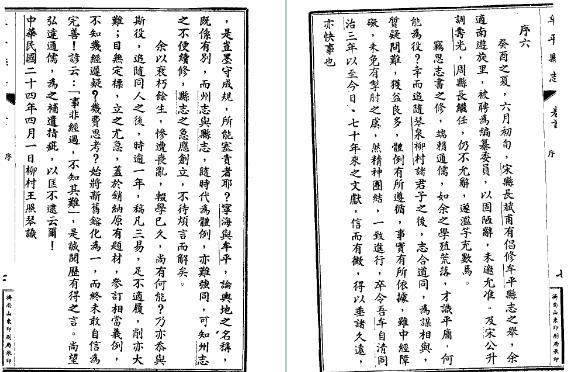 牟平縣志 卷首 序
濟南山東印刷局承印
序六
癸酉之夏，六月初旬，宋縣長斌甫有倡修牟平縣志之舉，余
適南遊旋里，被聘為編纂委員，以固陋辭，未邀允准。及宋公升
調壽光，周縣長繼任，仍不允辭，遂濫竽充數焉。
竊思志書之修，端賴通儒，如余之學殖荒落，才識平庸，何
能為役？幸而追隨琴泉柳村諸君子之後，志合道同，為謀相與，
質疑問難，獲益良多，體例有所遵循，事實有所依據，雖中經障
礙，未免有掣肘之虞，然精神團結，一致進行，卒令吾牟自清同
治三年以至今日，七十年來之文獻，信而有徵，得以垂諸久遠，
亦快事也
，是豈墨守成規，所能塞責者耶？寧海與牟平，論輿地之名稱，
既係有別，而州志與縣志，隨時代為體例，亦難強同，可知州志
之不便續修，縣志之急應創立，不待煩言而解矣。
余以衰朽餘生，慘遭喪亂，輟學已久，尚有何能？乃亦忝與
斯役，追隨同人之後，時逾一年，稿凡三易，足不適履，削亦大
難；目無定標，立之尤急，蓋於銷納原有題材，參訂相當義例，
不知幾經遲疑？幾費思考？始將新舊鎔化為一，而終未敢自信為
完善！諺云：「事非經過，不知其難」，是誠閱歷有得之言。尚望
弘達通儒，為之補遺揩疵，以匡不逮云爾！
中華民國二十四年四月一日柳村王照琴識
序
濟南山東印刷局承印